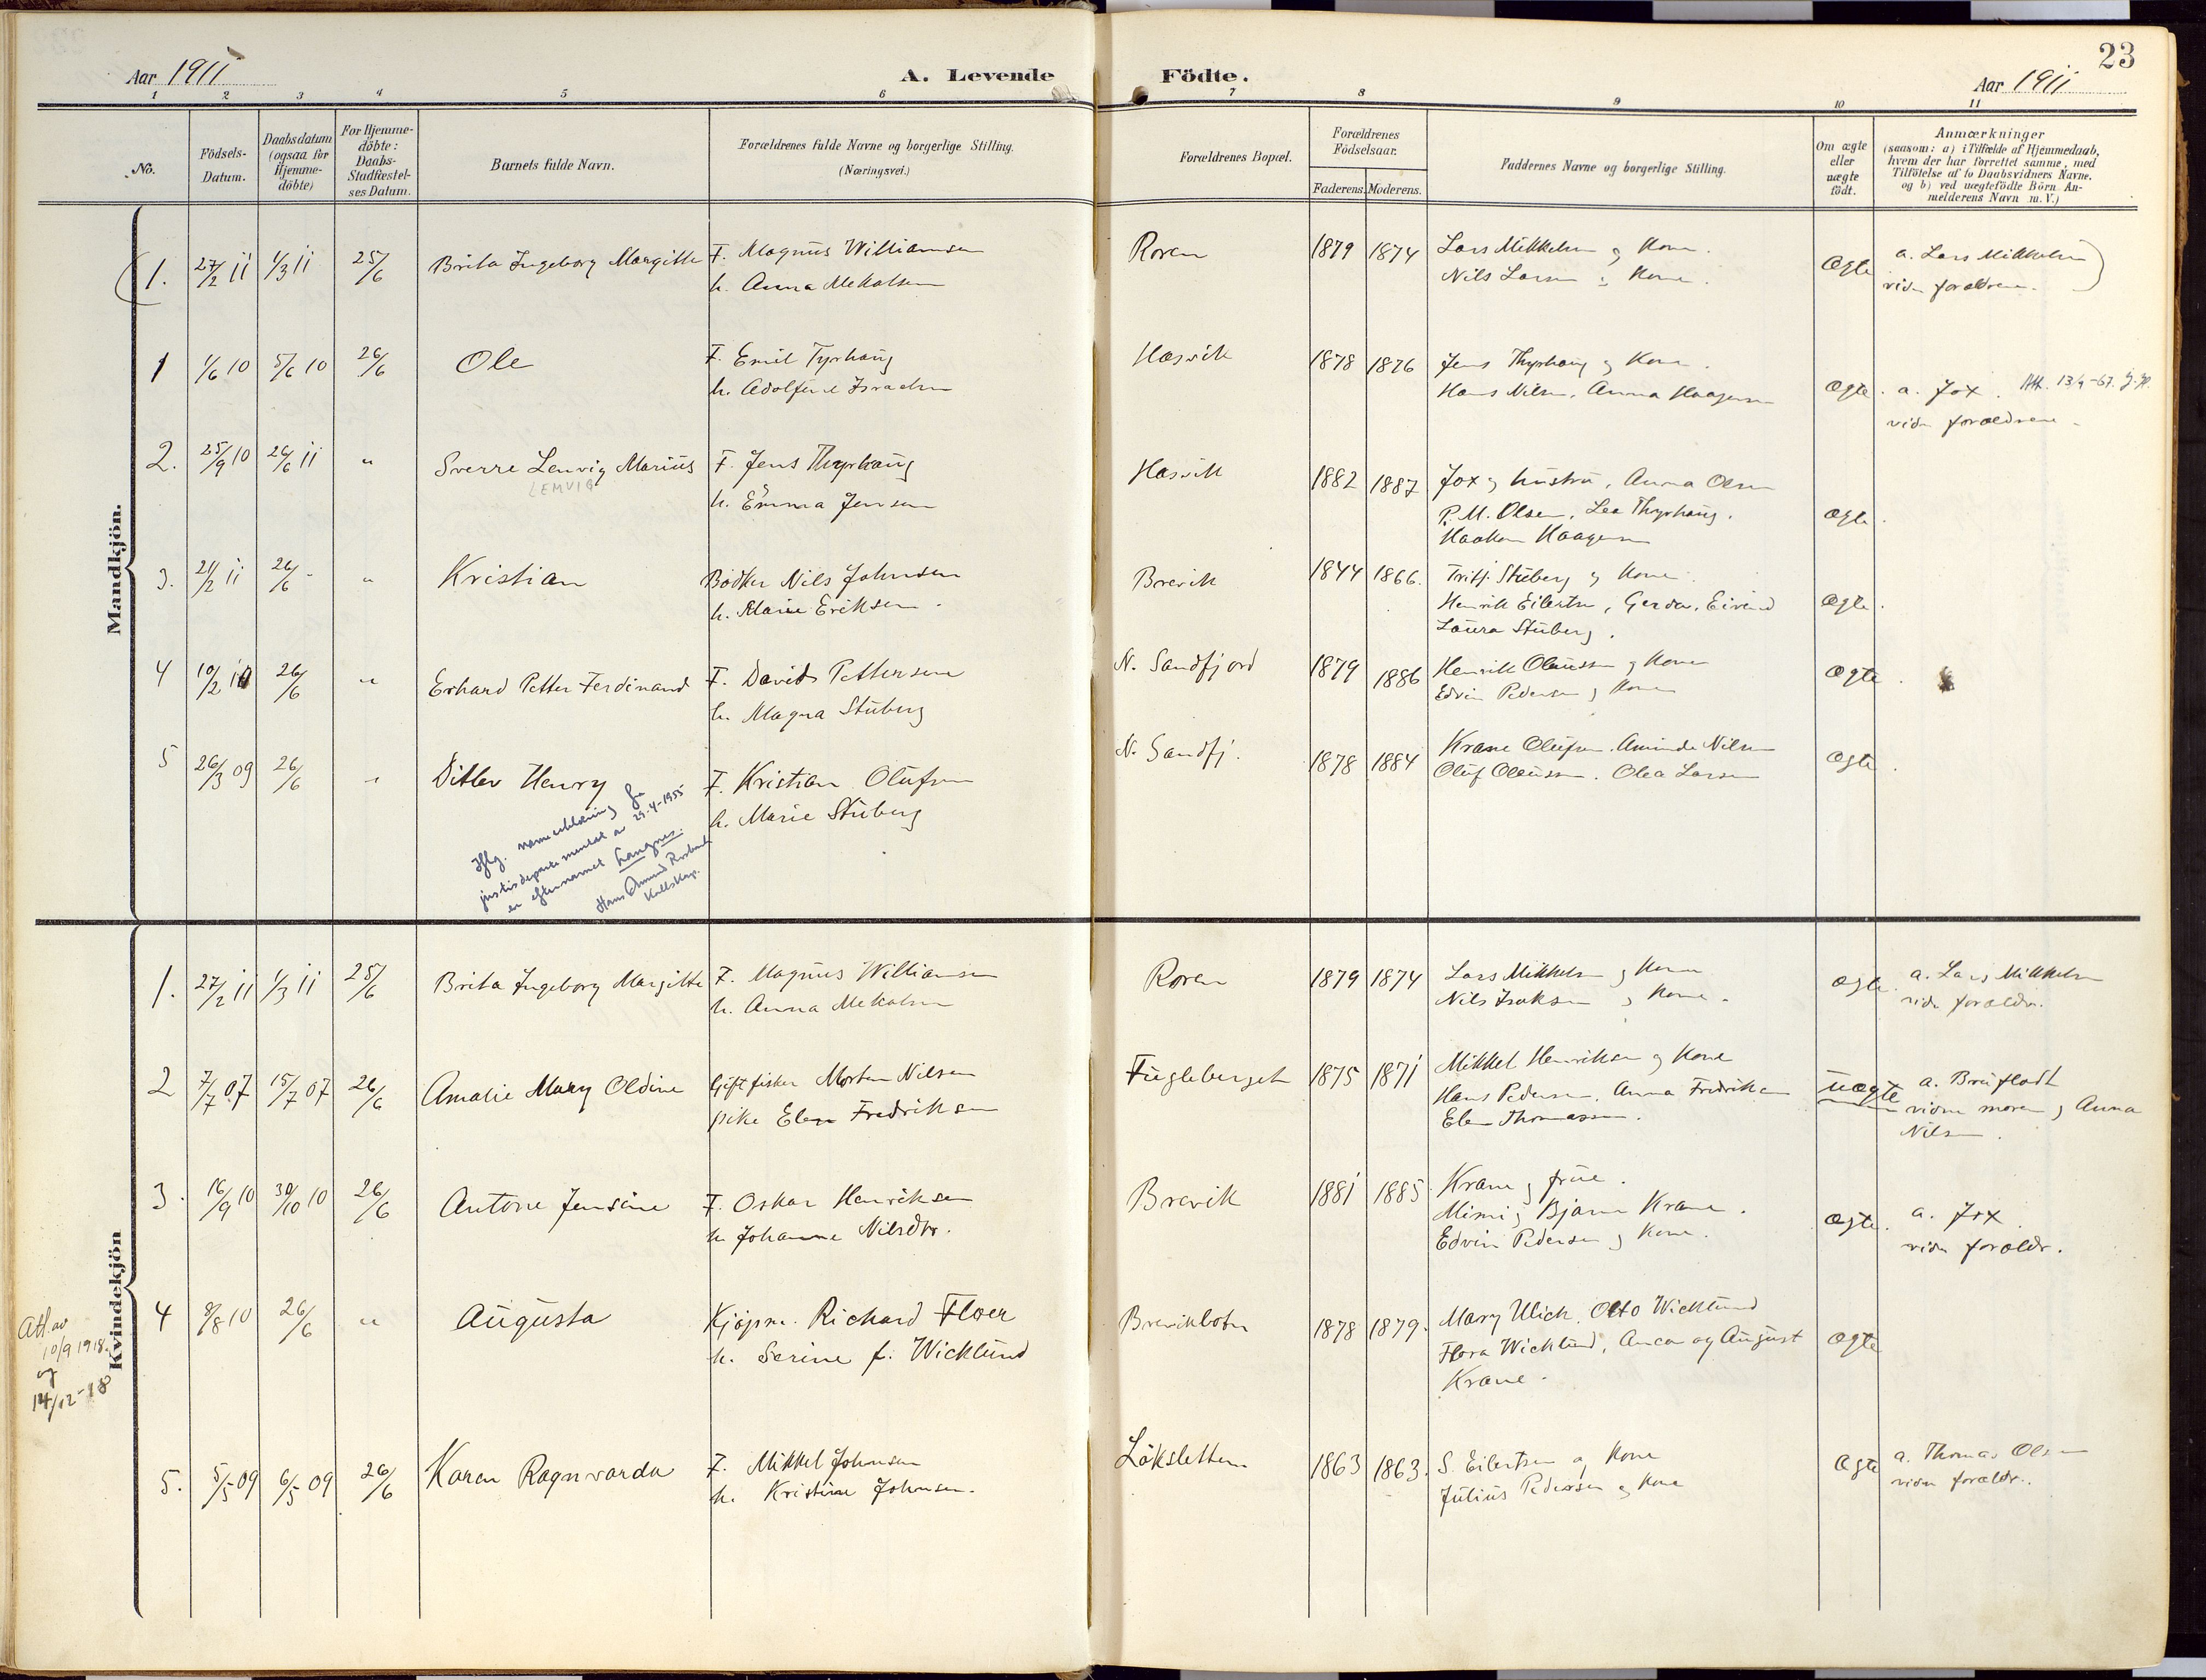 23
Aar 1911
A. Levende Födte.
Aar 1911
1 2 3 4 5 6 7 8 9 10 11
No.
Födsels-
Datum.
Daabsdatum
(ogsaa for
Hjemme-
döbte)
For Hjemme-
döbte:
Daabs-
Stadfæstel-
ses Datum.
Barnets fulde Navn.
Forældrenes fulde Navne og borgerlige Stilling.
(Næringsvei.)
Forældrenes Bopæl.
Forældrenes
Födselsaar.
Faderens. Moderens.
Faddernes Navne og borgerlige Stilling.
Om ægte
eller
uægte
födt.
Anmærkninger
(saasom: a) i Tilfælde af Hjemmedaab,
hvem der har forrettet samme, med
Tilföielse af to Daabsvidners Navne.
og b) ved uægtefödte Börn An-
melderens Navn m. V.)
Mandkjön.
(1. 27/2 11 1/3 11 25/6 Brita Ingeborg Margitte F. Magnus Williamsen Roren 1879 1874 Lars Mikkelsen og Kone. Ægte a. Lars Mikkelsen)
h. Anna Mekalsen Nils Larsen og Kone. vidn forældrene.
1 1/6 10 5/6 10 26/6 Ole F. Emil Tyrhaug Hasvik 1878 1876 Jens Thyrhaug og Kone.
h. Adolfine Israelsen Hans Nilsen, Anna Haagensen Ægte. a. Fox. Att. 13/4-67.
vidn forældrene.
2. 25/9 10 26/6 11 " Sverre Lenvig Marius F. Jens Thyrhaug Hasvik 1882 1887 Fox og hustru, Anna Olsen
LEMVIG
h. Emma Jensen P. M. Olsen, Lea Thyrhaug. Ægte.
Haakon Haagensen
3. 21/2 11 26/6 - " Kristian Bödker Nils Johnsen Brevik 1844 1866. Tritj. Stuberg og Kone.
h. Marie Eriksen. Henrik Eilertsen, Gerda, Eivind Ægte.
Laura Stuberg.
4 10/2 10 26/6 " Erhard Petter Ferdinand F. David Pettersen N. Sandfjord 1879 1886 Henrik Olaussen og Kone Ægte.
h. Magna Stuberg Edvin Pedersen og Kone
5 26/3 09 26/6 " Ditlev Henry F. Kristian Olufsen N. Sandfj. 1878 1884 Krane Olufsen. Aminda Nilsen Ægte.
h. Marie Stuberg Oluf Olaussen. Olea Larsen
Iflg. navneerklæring fra
justisdepartementet av 29-4-1955
er efternavnet Langnes.
Hans Amund Rosbach
Kallskap.
Kvindekjön
1. 27/2 11 1/3 11 25/6 Brita Ingeborg Margitte F. Magnus Williamsen Roren 1879 1874 Lars Mikkelsen og Kone Ægte. a. Lars Mikkelsen
h. Anna Mekalsen Nils Isaksen og Kone. vidn forældr.
2 7/7 07 15/7 07 26/6 Amalie Mary Oldine Gift fisker Morten Nilsen Fugleberget 1875 1871 Mikkel Henriksen og Kone
pike Elen Fredriksen Hans Pedersen, Anna Fredriksen uægte a. Bruflodt
Elen Thomassen. vidne moren og Anna
Nilsen.
3. 16/9 10 30/10 10 26/6 Antone Jensine F. Oskar Henriksen Brevik 1881 1885 Krane og frue.
h. Johanne Nilsdtr. Mimi og Bjarne Krane. Ægte. a. Fox.
Edvin Pedersen og Kone. vidn forældr.
4 8/8 10 26/6 " Augusta Kjöpm. Richard Floer Brevikbotn 1878 1879. Mary Ulich, Otto Wicklund
h. Serine f. Wicklund Flora Wicklund, Anca og August Ægte
Krane.
Att. av
10/9 1918.
og
14/12-18
5. 5/5 09 6/5 09 26/6 Karen Ragnvarda F. Mikkel Johnsen Löksletten 1863 1863. S. Eilertsen og Kone Ægte a. Thomas Olsen
h. Kristine Johnsen. Julius Pedersen og Kone vidn forældr.